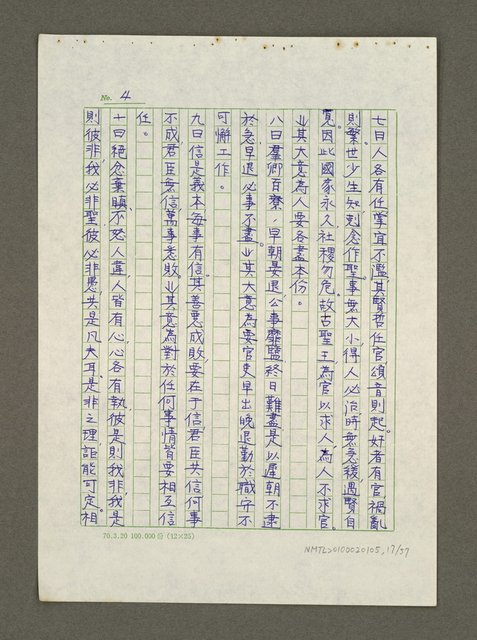 No. 4
七曰人各有任掌宜不濫其賢哲任官頌音則起。好者有官禍亂
則繁世少生知剋念作聖事無大小得人必治時無急緩遇賢自
寬因此國家永久社稷勿危。故古聖王為官以求人為人不求官。
业其大意為人要各盡本份。
八曰羣卿百寮，早朝晏退，公事靡鹽終日難盡是以遲朝不逮
於急早退必事不盡。业其大意為要官吏早出晚退勤於職守不
可懈工作。
九曰信是義本每事有信。其善惡成敗要在于信君臣共信何事
不成君臣無信萬事悉敗。业其意為對於任何事情皆要相互信
任。
十曰絕忿棄瞋，不怒人違，人皆有心，心各有執，彼是則我非，我是
則彼非，我必非聖，彼必非愚，共是凡夫耳，是非之理，詎能可定。相
70.3.20 100.000份 (12×25)
NMTL20100020105, 17/57